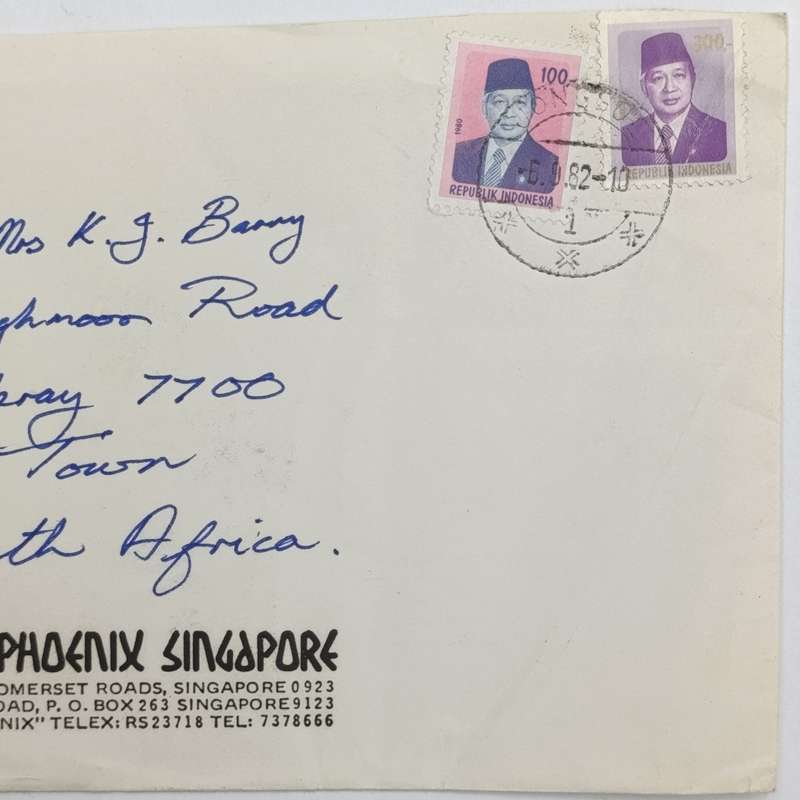 100
1980
REPUBLIK INDONESIA
300,-
REPUBLIK INDONESIA
82-10
1
Mrs K. J. Barry
Road
7700
Town
th Africa.
PHOENIX SINGAPORE
OMERSET ROADS, SINGAPORE 0923
OAD, P. O. BOX 263 SINGAPORE 9123
NIX" TELEX: RS 23718 TEL: 7378666